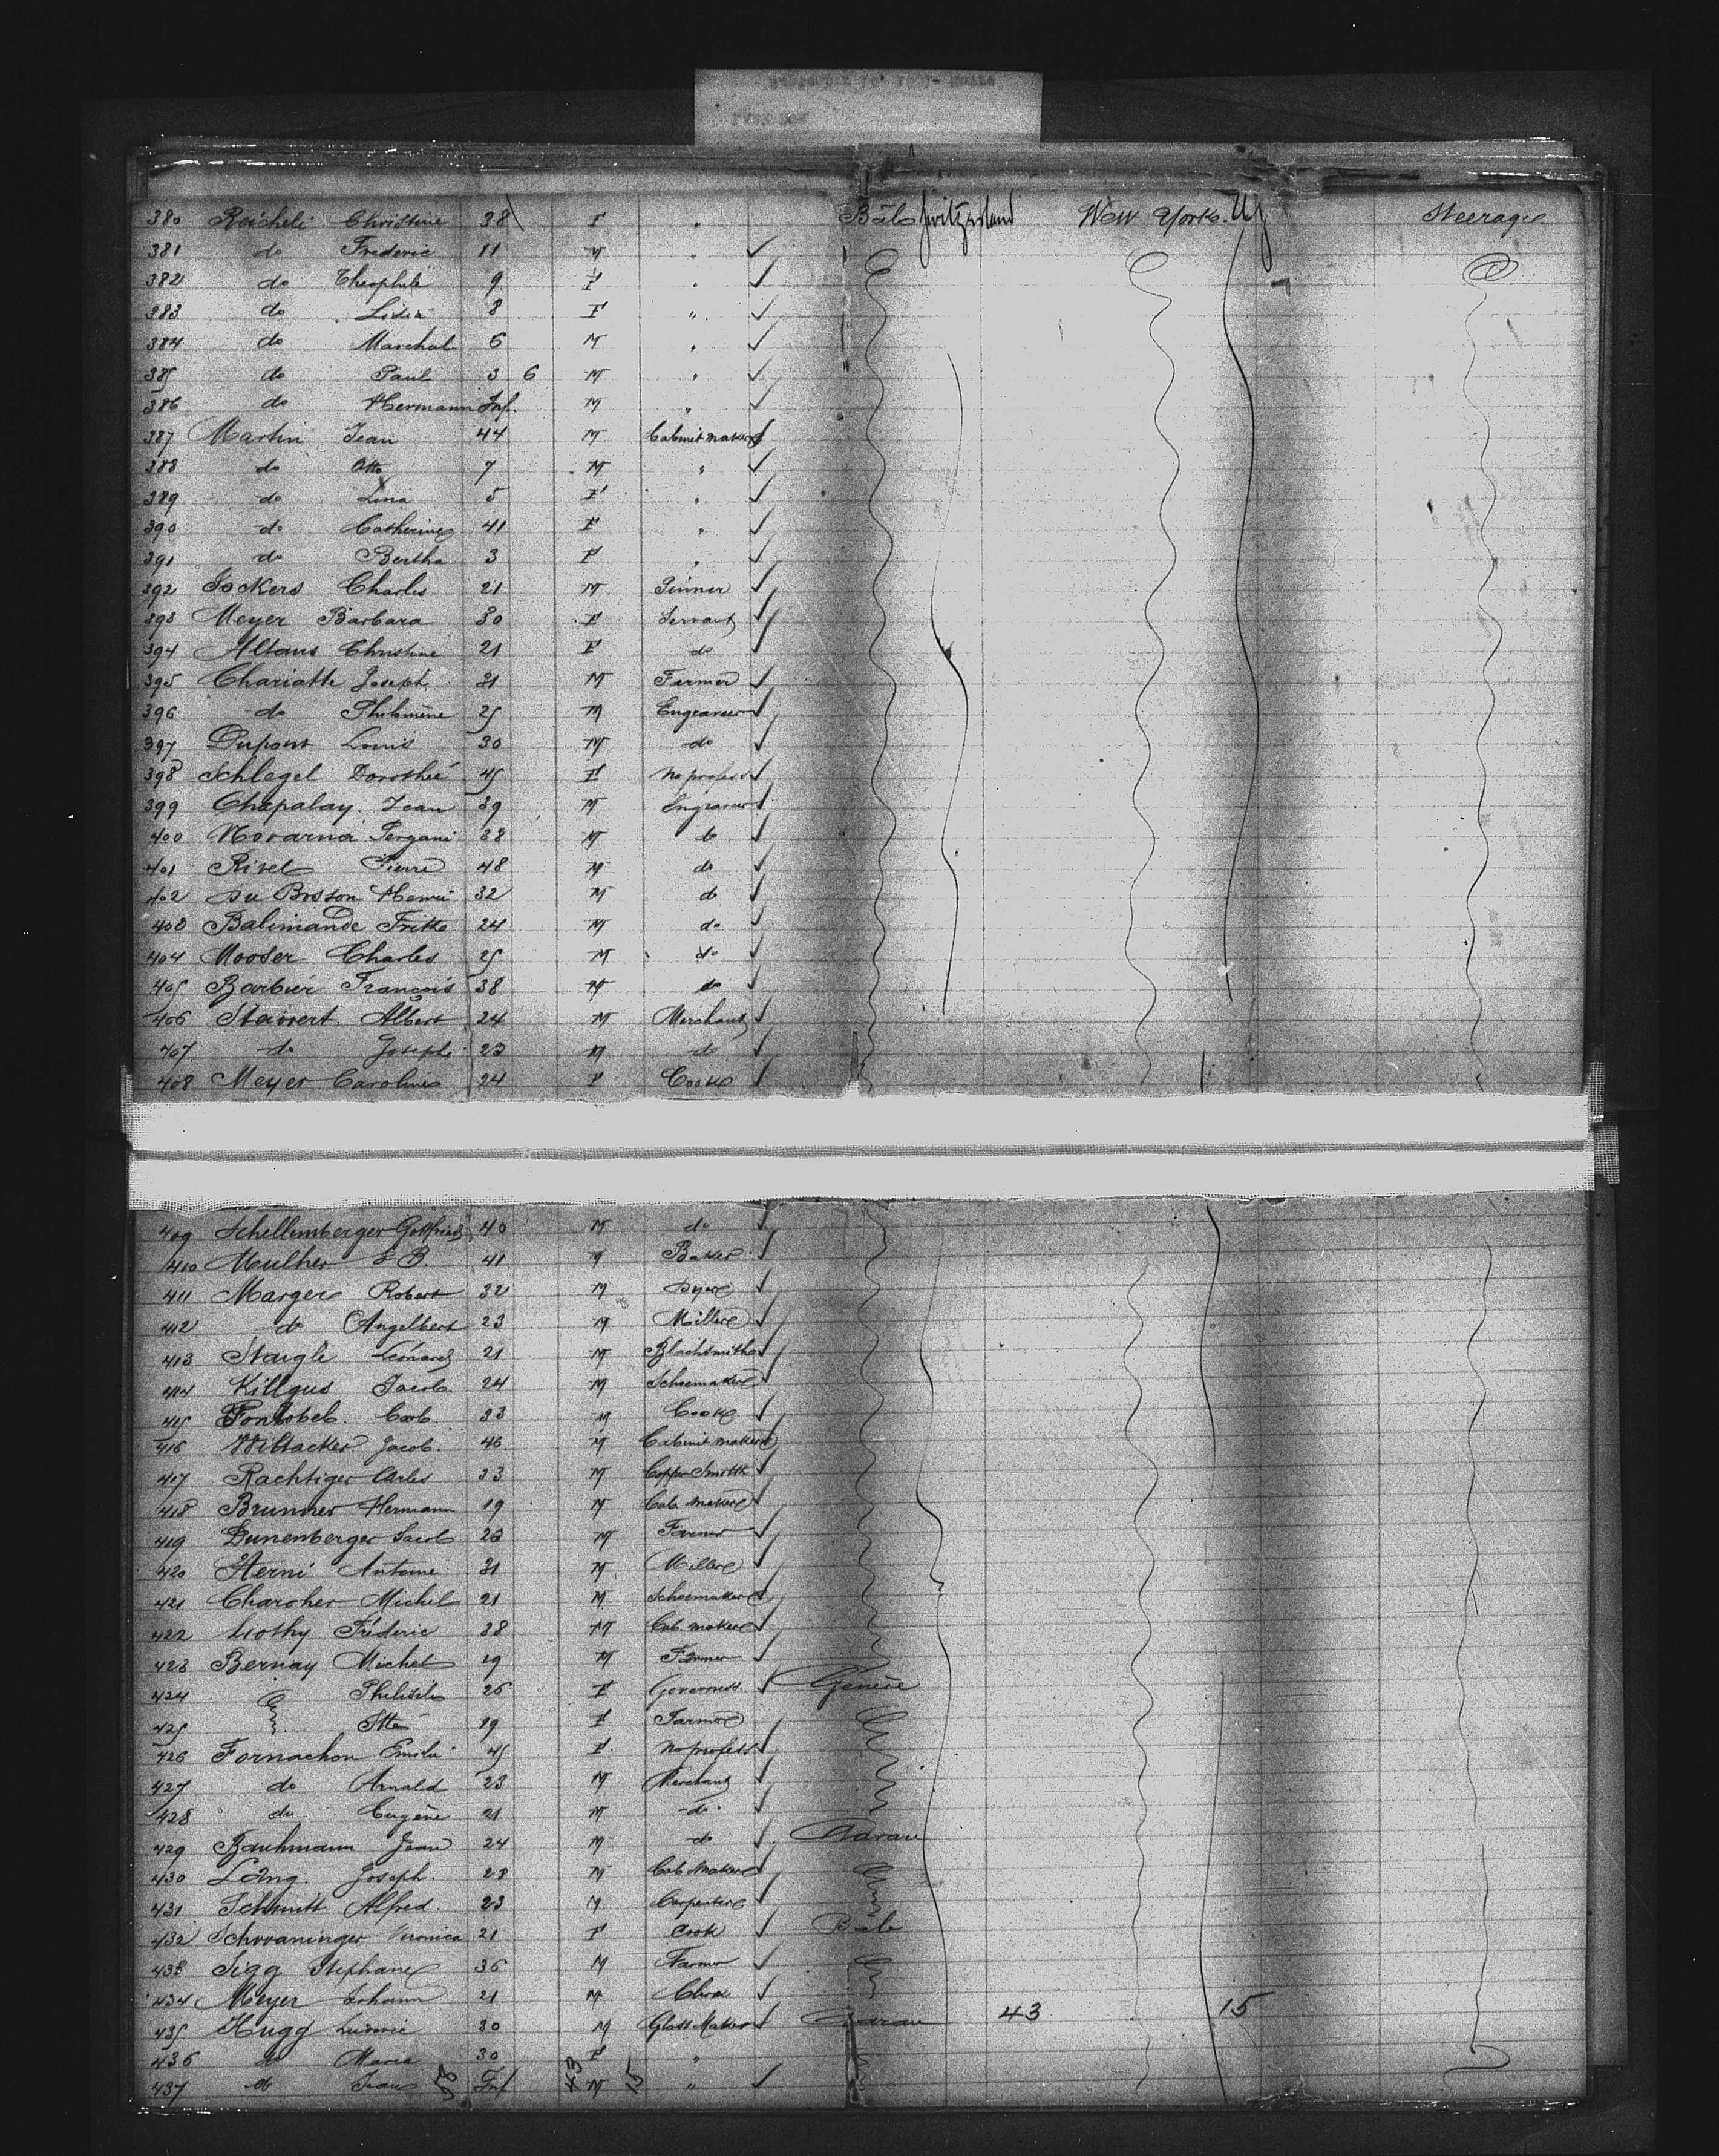 380 Reicheli Christine 38 F " Bâle Switzerland New York Steerage
381 do Frederic 11 M "
382 do Theophile 9 F "
383 do Lidia 8 F "
384 do Marchal 5 M "
385 do Paul 3 6 M "
386 do Hermann Inf. M "
387 Martin Jean 44 M Cabinet maker
388 do Otto 7 M "
389 do Lina 5 F "
390 do Catherine 41 F "
391 do Bertha 3 F "
392 Jockers Charles 21 M
393 Meyer Barbara 30 F Servant
394 Altaus Christine 21 F do
395 Chariatte Joseph 31 M Farmer
396 do Philomène 25 M Engraver
397 Dupont Louis 30 M do
398 Schlegel Dorothée 45 F No profess
399 Chapalay Jean 39 M Engraver
400 Novarna 38 M do
401 Pierre 48 M do
402 Du Bosson Henri 32 M do
403 Balimande Fritte 24 M do
404 Mooser Charles 25 M do
405 Barbier François 38 M do
406 Albert 24 M Merchant
407 do Joseph 23 M do
408 Meyer Caroline 24 F Cook
409 Schellemberger Gottfried 40 M do
410 41 M Baker
411 Marger Robert 32 M Dyer
412 do Angelbert 23 M Miller
413 Staigle Leonard 21 M Blacksmith
414 Killgus Jacob 24 M Schoemaker
415 Fontobel Carl 33 M Cook
416 Jacob 46 M Cabinet maker
417 Rachtiger Carles 33 M Copper Smith
418 Brunner Hermann 19 M Cab. maker
419 Dunenberger Jacob 23 M Farmer
420 Herni Antoine 31 M Miller
421 Charcher Michel 21 M Schoemaker
422 Fréderic 38 M Cab. maker
423 Bernay Michel 19 M Farmer
424 26 F Governess Genève
425 19 F Farmer
426 Fornachon Emilie 45 F No profess
427 do Arnald 23 M Merchant
428 do Eugène 21 M do
429 Bauhmann Jean 24 M do Aarau
430 Lang Joseph 28 M Cab Maker
431 Schmitt Alfred 23 M Carpenter
432 Schwaninger Veronica 21 F Cook Bâle
433 Sigg Stephane 36 M Farmer
434 Meyer Johann 21 M
435 Hugg Ludovic 30 M Glass Maker Aarau 43 15
436 do Marie 30 F "
437 do Jean Inf M " 58 43 15